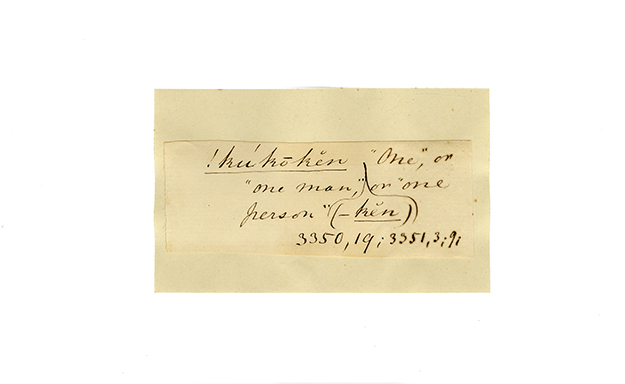 !kú kō kĕn "One", or
"one man," or "one
person" (– kĕn)
3350, 19; 3351, 3; 9;